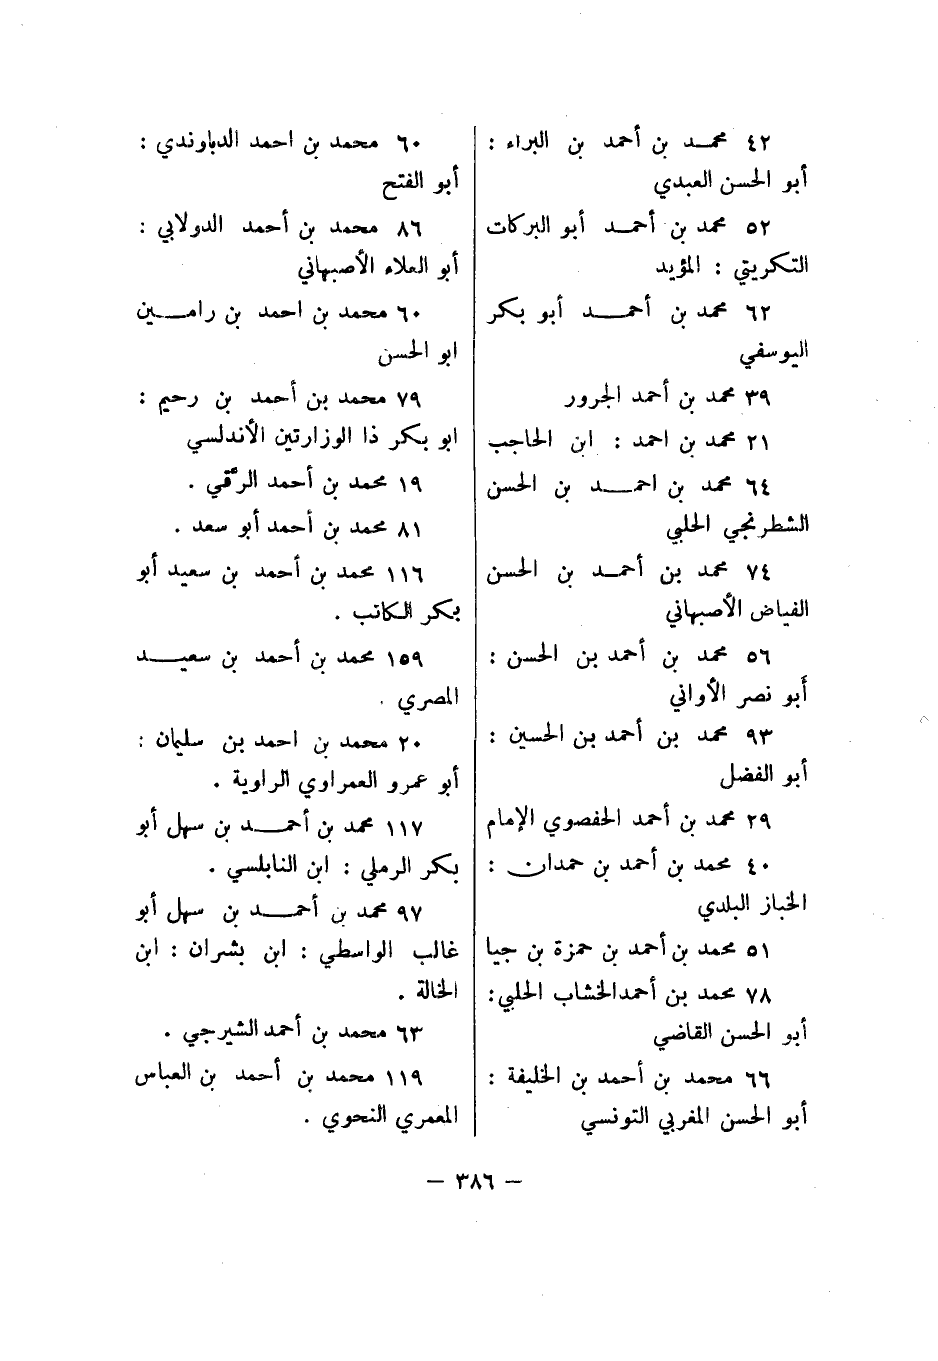 ٤٢ محمد بن أحمد بن البراء :
أبو الحسن العبدي
٥٢ محمد بن أحمد أبو البركات
التكريتي : المؤيد
٦٢ محمد بن أحمد أبو بكر
اليوسفي
٣٩ محمد بن أحمد الجرور
٢١ محمد بن احمد : ابن الحاجب
٦٤ محمد بن احمد بن الحسن
الشطرنجي الحلبي
٧٤ محمد بن أحمد بن الحسن
الفياض الأصبهاني
٥٦ محمد بن أحمد بن الحسن :
أبو نصر الأواني
٩٣ محمد بن أحمد بن الحسين :
أبو الفضل
٢٩ محمد بن أحمد الحفصوي الإمام
٤٠ محمد بن أحمد بن حمدان :
الخباز البلدي
٥١ محمد بن أحمد بن حمزة بن جيا
٧٨ محمد بن أحمد الخشاب الحلبي :
أبو الحسن القاضي
٦٦ محمد بن أحمد بن الخليفة :
أبو الحسن المغربي التونسي
٦٠ محمد بن احمد الدباوندي :
أبو الفتح
٨٦ محمد بن أحمد الدولابي :
أبو العلاء الأصبهاني
٦٠ محمد بن احمد بن رامين
ابو الحسن
٧٩ محمد بن أحمد بن رحيم :
ابو بكر ذا الوزارتين الأندلسي
١٩ محمد بن أحمد الرقي .
٨١ محمد بن أحمد أبو سعد .
١١٦ محمد بن أحمد بن سعيد أبو
بكر الكاتب .
١٥٩ محمد بن أحمد بن سعيد
المصري .
٢٠ محمد بن احمد بن سليمان :
أبو عمرو العمراوي الراوية .
١١٧ محمد بن أحمد بن سهل أبو
بكر الرملي : ابن النابلسي .
٩٧ محمد بن أحمد بن سهل أبو
غالب الواسطي : ابن بشران : ابن
الخالة .
٦٣ محمد بن أحمد الشيرجي .
١١٩ محمد بن أحمد بن العباس
المعمري النحوي .
— ٣٨٦ —